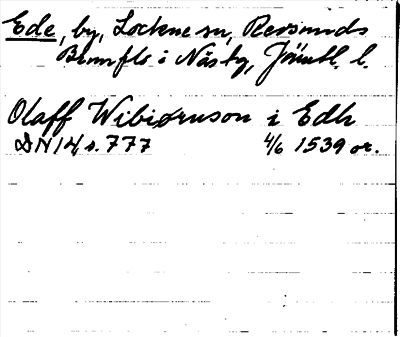 Ede, by, Lockne sn, Revsunds
Brunflo i Näs tg, Jämtl. l.
Olaff Wibiørnson i Edh
DN 14, s. 777 4/6 1539 or.